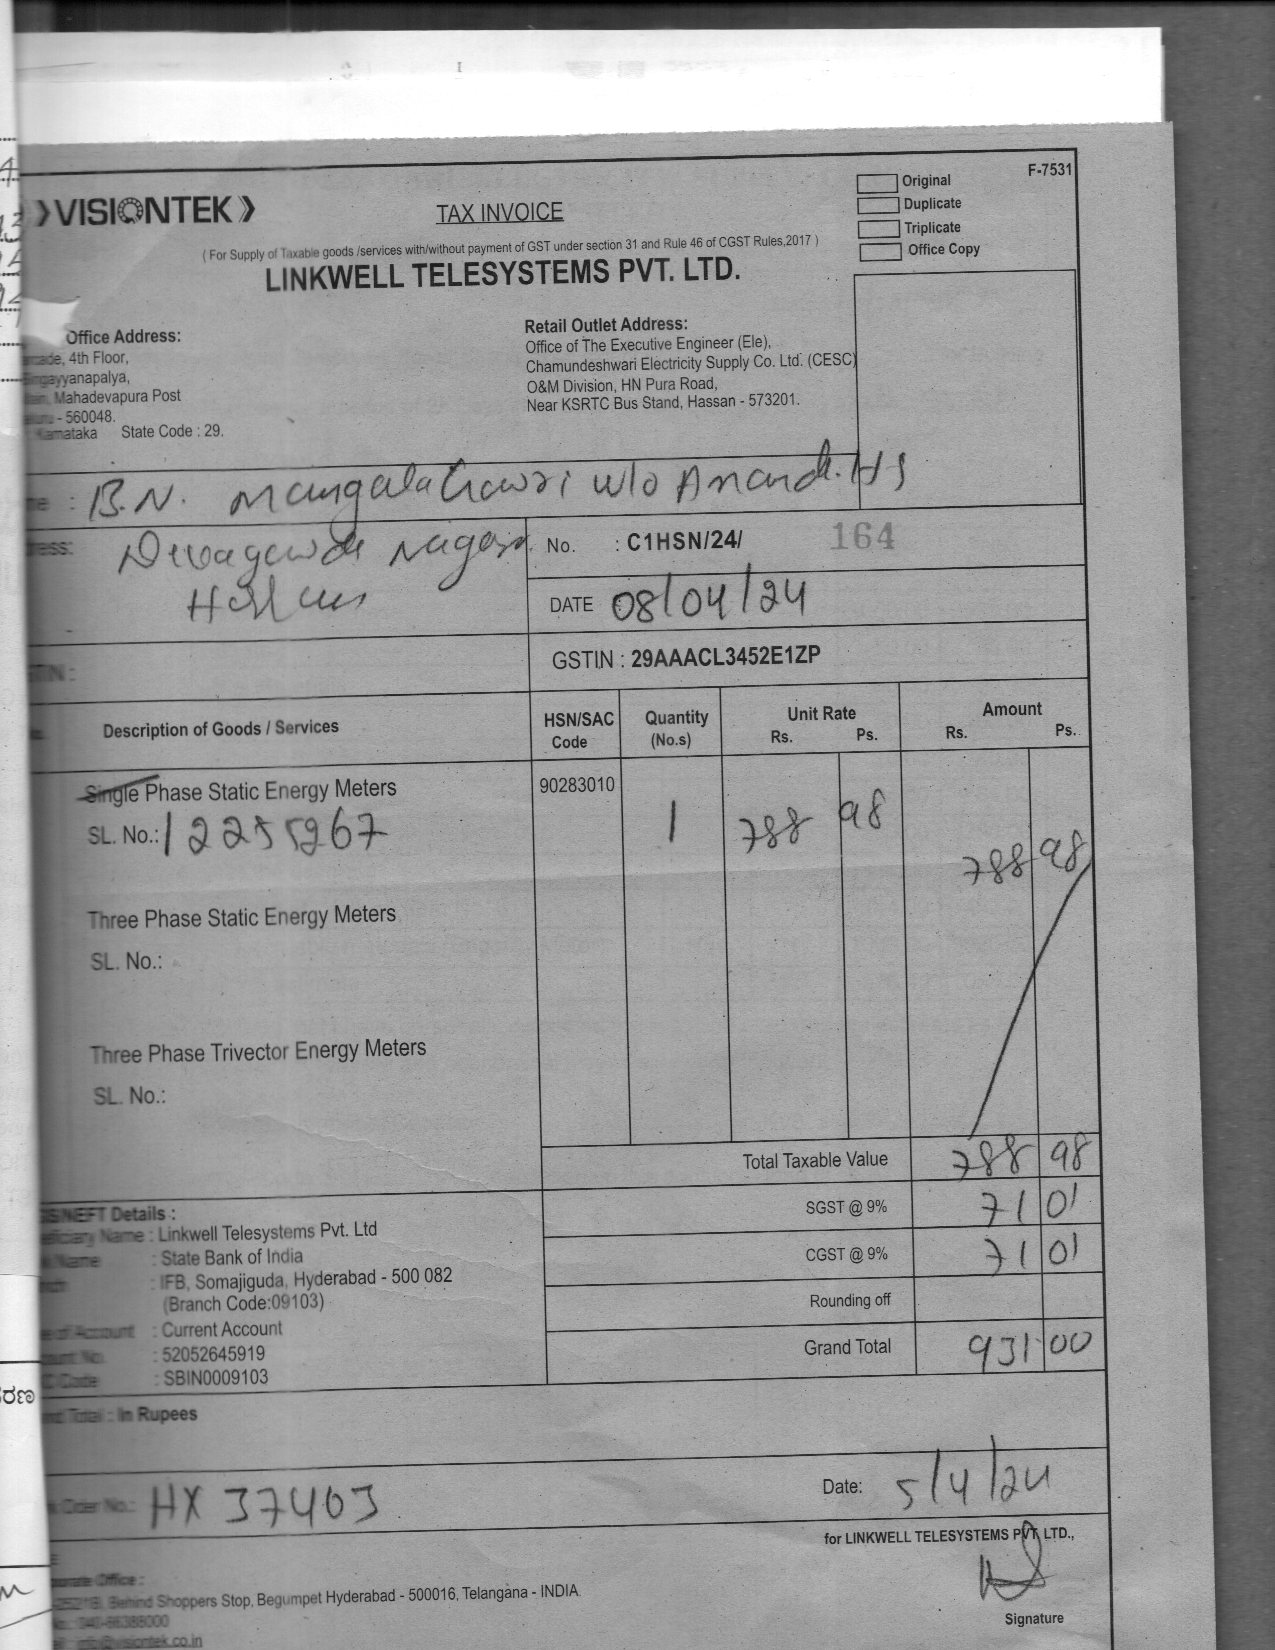 F-7531
Original
Duplicate
Triplicate
Office Copy
VISIONTEK
TAX INVOICE
( For Supply of Taxable goods /services with/without payment of GST under section 31 and Rule 46 of CGST Rules,2017 )
LINKWELL TELESYSTEMS PVT. LTD.
Office Address:
4th Floor,
Mahadevapura Post
- 560048.
Karnataka State Code : 29.
Retail Outlet Address:
Office of The Executive Engineer (Ele),
Chamundeshwari Electricity Supply Co. Ltd. (CESC)
O&M Division, HN Pura Road,
Near KSRTC Bus Stand, Hassan - 573201.
: B.N. w/o Anand. HS
No. : C1HSN/24/ 164
DATE 08/04/24
GSTIN : 29AAACL3452E1ZP
Description of Goods / Services HSN/SAC Code Quantity (No.s) Unit Rate Rs. Ps. Amount Rs. Ps.
Single Phase Static Energy Meters 90283010 1 788 98 788 98
SL. No.: 12255967
Three Phase Static Energy Meters
SL. No.:
Three Phase Trivector Energy Meters
SL. No.:
Total Taxable Value 788 98
SGST @ 9% 71 01
CGST @ 9% 71 01
Rounding off
Grand Total 931 00
NEFT Details :
Name : Linkwell Telesystems Pvt. Ltd
Name : State Bank of India
: IFB, Somajiguda, Hyderabad - 500 082
(Branch Code:09103)
of Account : Current Account
No. : 52052645919
Code : SBIN0009103
Total : In Rupees
Order No.: HX 37403
Date: 5/4/24
for LINKWELL TELESYSTEMS PVT. LTD.,
Office :
Behind Shoppers Stop, Begumpet Hyderabad - 500016, Telangana - INDIA.
040-66388000
info@visiontek.co.in
Signature